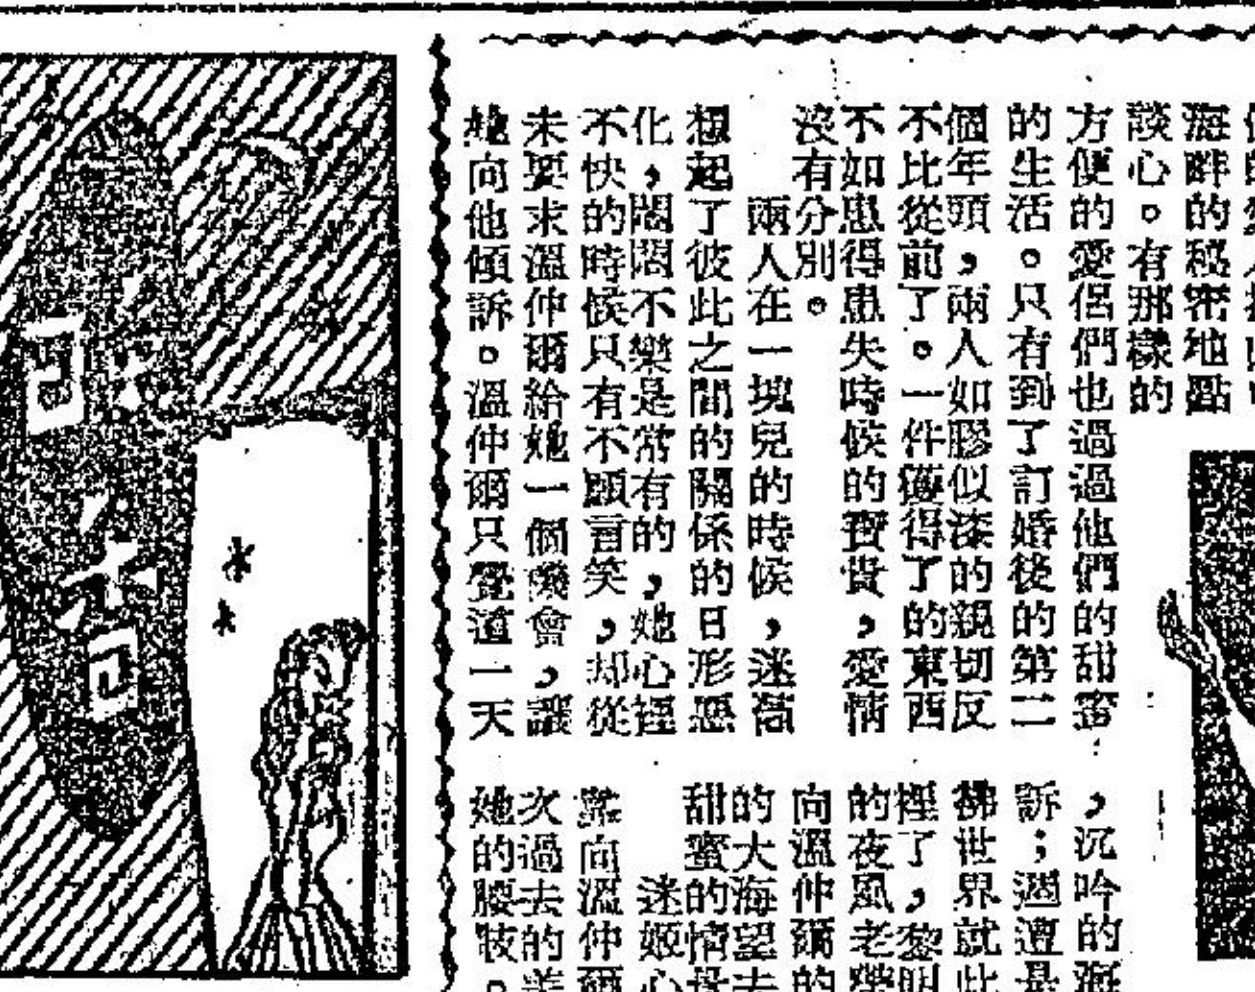 海畔的秘密地點
談心。有那樣的
方便的愛侶們也過過他們的甜蜜
的生活。只有到了訂婚後的第二
個年頭，兩人如膠似漆的親切反
不比從前了。一件獲得了的東西
不如患得患失時候的寶貴，愛情
沒有分別。
兩人在一塊兒的時候，迷
想起了彼此之間的關係的日形惡
化，悶悶不樂是常有的，她心裡
不快的時候只有不願言笑，却從
未要求溫仲爾給她一個機會，讓
她向他傾訴。溫仲爾只覺道一天
，沉吟的海
訴；週遭是
世界就此
裡了，
的夜風老
向溫仲爾的
的大海望去
甜蜜的情
迷姬心
常向溫仲爾
次過去的
她的腰肢。